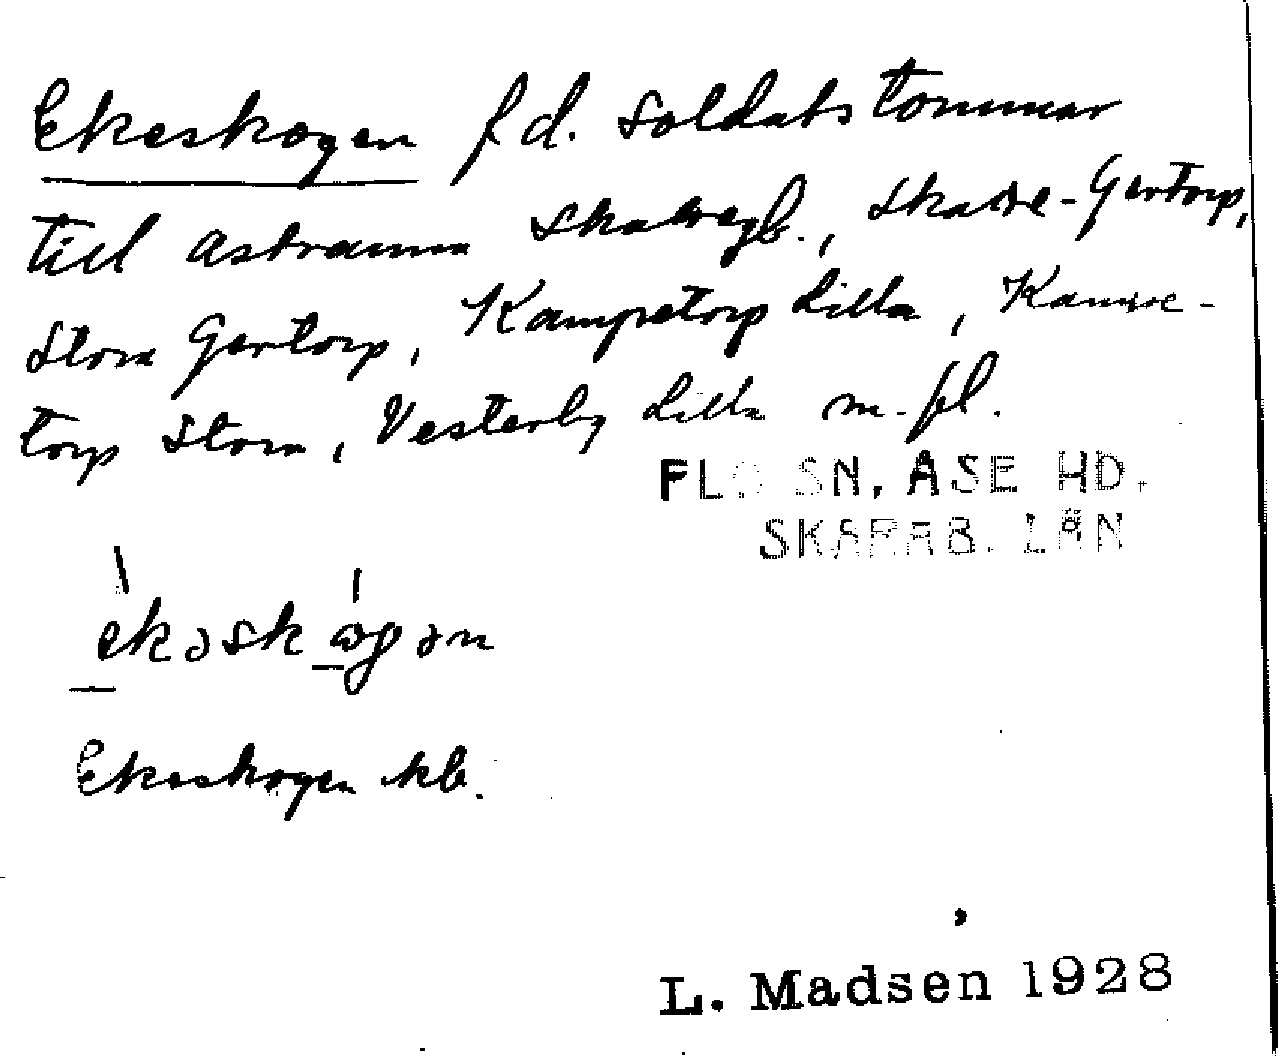 Ekeskogen f d. soldatstommar
till Åstranna Skattegb., Skatte-Gertorp,
Stora Gertorp, Kampetorp Lilla, Kampe-
torp Stora, Vesterby Lilla m. fl.
FLO SN. ÅSE HD.
SKARAB. LÄN
Ekeskogen kb.
L. Madsen 1928